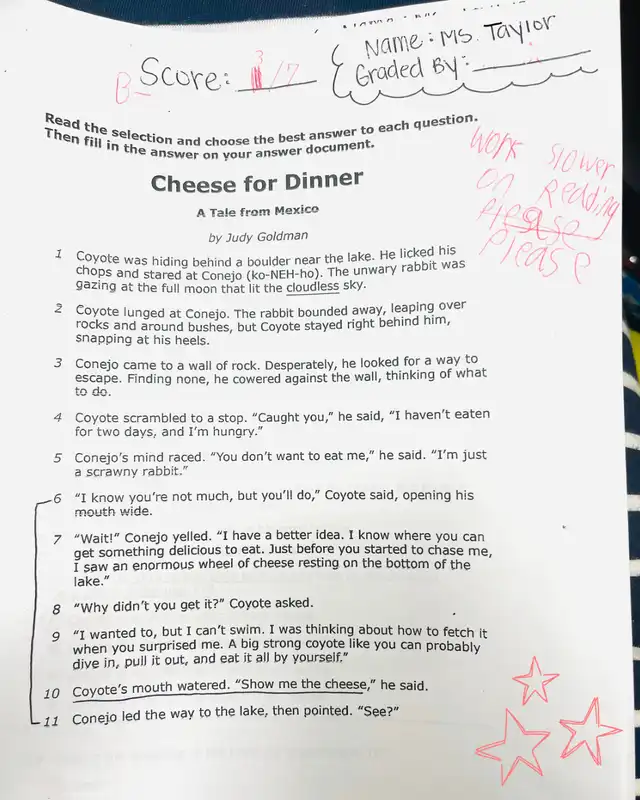 Name: Ms. Taylor
B- Score: 3/7
Graded By:
Read the selection and choose the best answer to each question.
Then fill in the answer on your answer document.
Work slower
on Redding
Please
Please
Cheese for Dinner
A Tale from Mexico
by Judy Goldman
1 Coyote was hiding behind a boulder near the lake. He licked his
chops and stared at Conejo (ko-NEH-ho). The unwary rabbit was
gazing at the full moon that lit the cloudless sky.
2 Coyote lunged at Conejo. The rabbit bounded away, leaping over
rocks and around bushes, but Coyote stayed right behind him,
snapping at his heels.
3 Conejo came to a wall of rock. Desperately, he looked for a way to
escape. Finding none, he cowered against the wall, thinking of what
to do.
4 Coyote scrambled to a stop. “Caught you,” he said, “I haven’t eaten
for two days, and I’m hungry.”
5 Conejo’s mind raced. “You don’t want to eat me,” he said. “I’m just
a scrawny rabbit.”
6 “I know you’re not much, but you’ll do,” Coyote said, opening his
mouth wide.
7 “Wait!” Conejo yelled. “I have a better idea. I know where you can
get something delicious to eat. Just before you started to chase me,
I saw an enormous wheel of cheese resting on the bottom of the
lake.”
8 “Why didn’t you get it?” Coyote asked.
9 “I wanted to, but I can’t swim. I was thinking about how to fetch it
when you surprised me. A big strong coyote like you can probably
dive in, pull it out, and eat it all by yourself.”
10 Coyote’s mouth watered. “Show me the cheese,” he said.
11 Conejo led the way to the lake, then pointed. “See?”